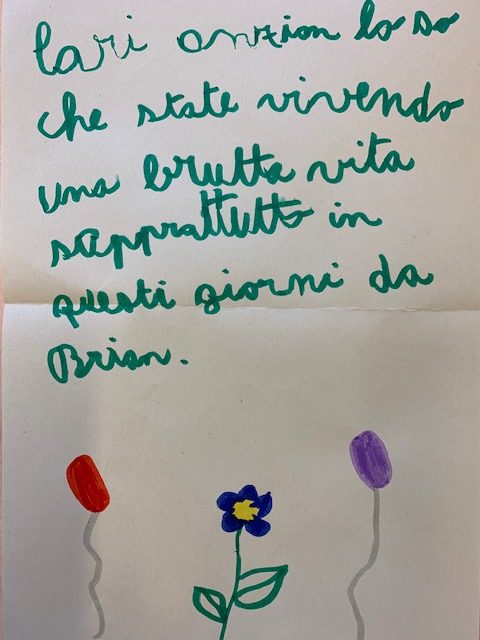 Cari anzian lo so
che state vivendo
una brutta vita
sapprattutto in
questi giorni da
Brian.